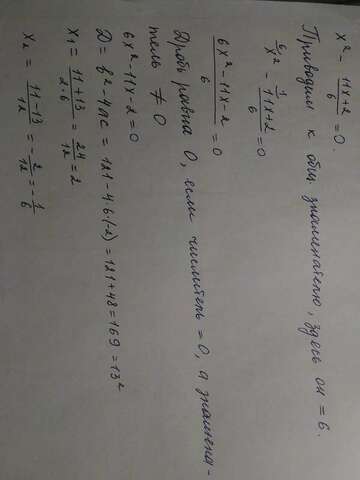 x² - 11x+2/6 = 0.
Приводим к общ. знаменателю, здесь он = 6.
⁶x² - ¹11x+2/6 = 0
6x² - 11x - 2/6 = 0
Дробь равна 0, если числитель = 0, а знамена-
тель ≠ 0
6x² - 11x - 2 = 0
D = b² - 4ac = 121 - 4·6·(-2) = 121 + 48 = 169 = 13²
x₁ = 11+13/2·6 = 24/12 = 2
x₂ = 11-13/12 = -2/12 = -1/6